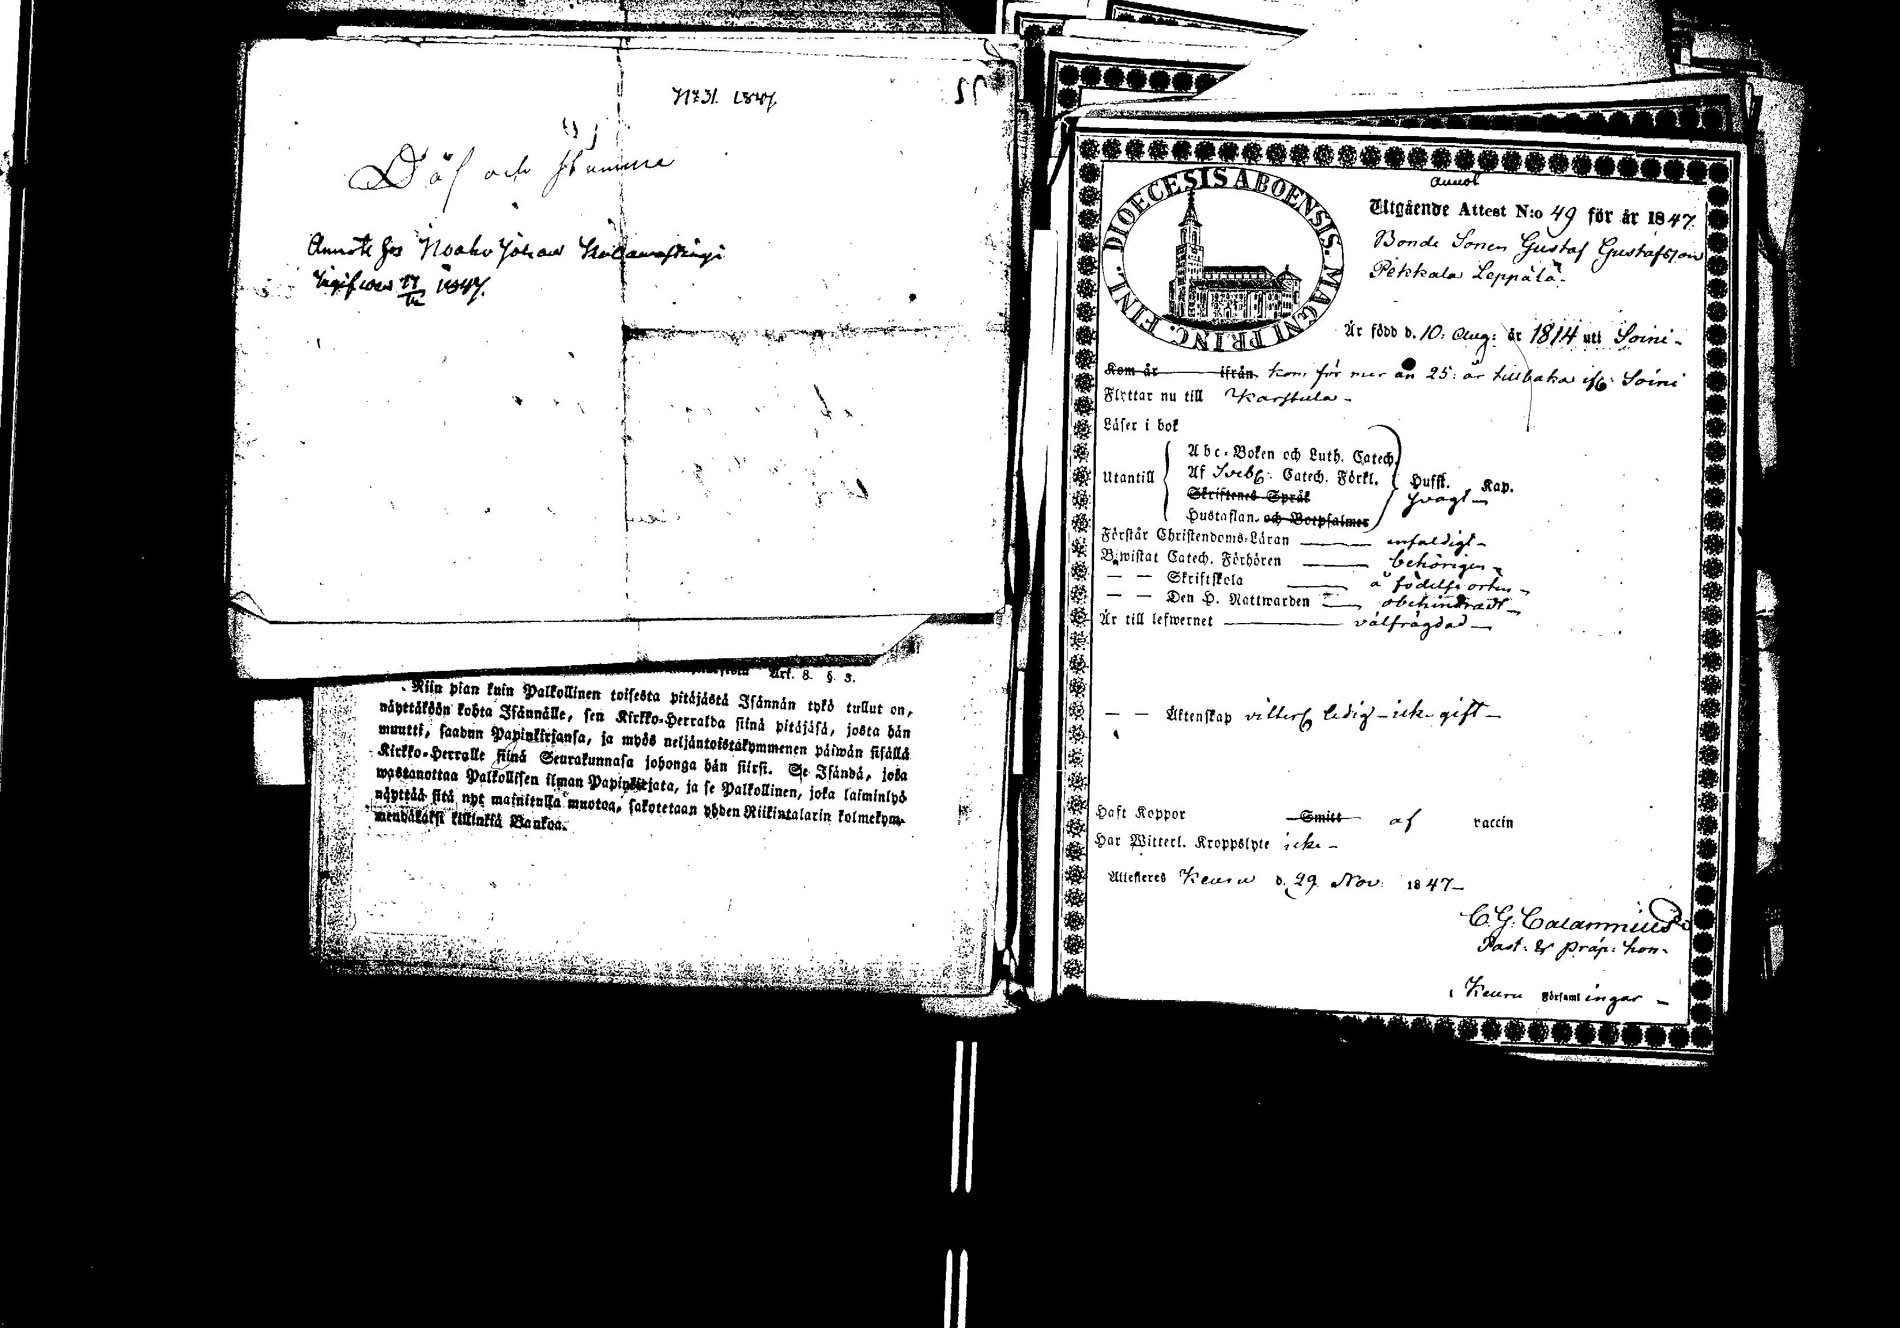 No 31. 1847.
Döf och stumme
Annote hos Noaks Johan
Ingifwen 17/12 1847.
Art. 8. §. 3.
Niin pian kuin Palkollinen toisesta pitäjästä Isännän tykö tullut on,
näyttäköön kohta Isännälle, sen Kirkko-Herralda siinä pitäjäsä, josta hän
muutti, saadun Papinkirjansa, ja myös neljäntoistakymmenen päiwän sisällä
Kirkko-Herralle siinä Seurakunnasa johonga hän siirsi. Se Isändä, joka
wastanottaa Palkollisen ilman Papinkirjata, ja se Palkollinen, joka laiminlyö
näyttää sitä nyt mainitulla muotoa, sakotetaan yhden Riikintalarin kolmekym-
mendäkaksi killinkiä Bankoa.
DIOECESIS ABOENSIS. MAGNI PRINC. FINL.
annot
Utgående Attest N:o 49 för år 1847
Bonde Sonen Gustaf Gustafsson
Pekkala Leppälä
Är född d. 10. Aug: år 1814 uti Soini
Kom år ifrån kom för mer än 25: år tillbaka ifr: Soini
Flyttar nu till Karstula
Läser i bok
Utantill
Abc-Boken och Luth. Catech.
Af Sveb: Catech. Förkl.
Skriftenes Språk
Hustaflan och Botpsalmer
Hufst. Kap.
svagt
Förstår Christendoms-Läran enfaldigt
Bewistat Catech. Förhören behörigen
— — Skriftskola å födelse orten
— — Den H. Nattwarden obehindradt
Är till lefwernet välfrägdad
— — Äktenskap ledig - icke gift
Haft Koppor Smitt af vaccin
Har Witterl. Kroppslyte icke
Attesteras Keuru d. 29 Nov: 1847
C. G. Calamnius
Past. & præp: hon.
i Keuru Församlingar